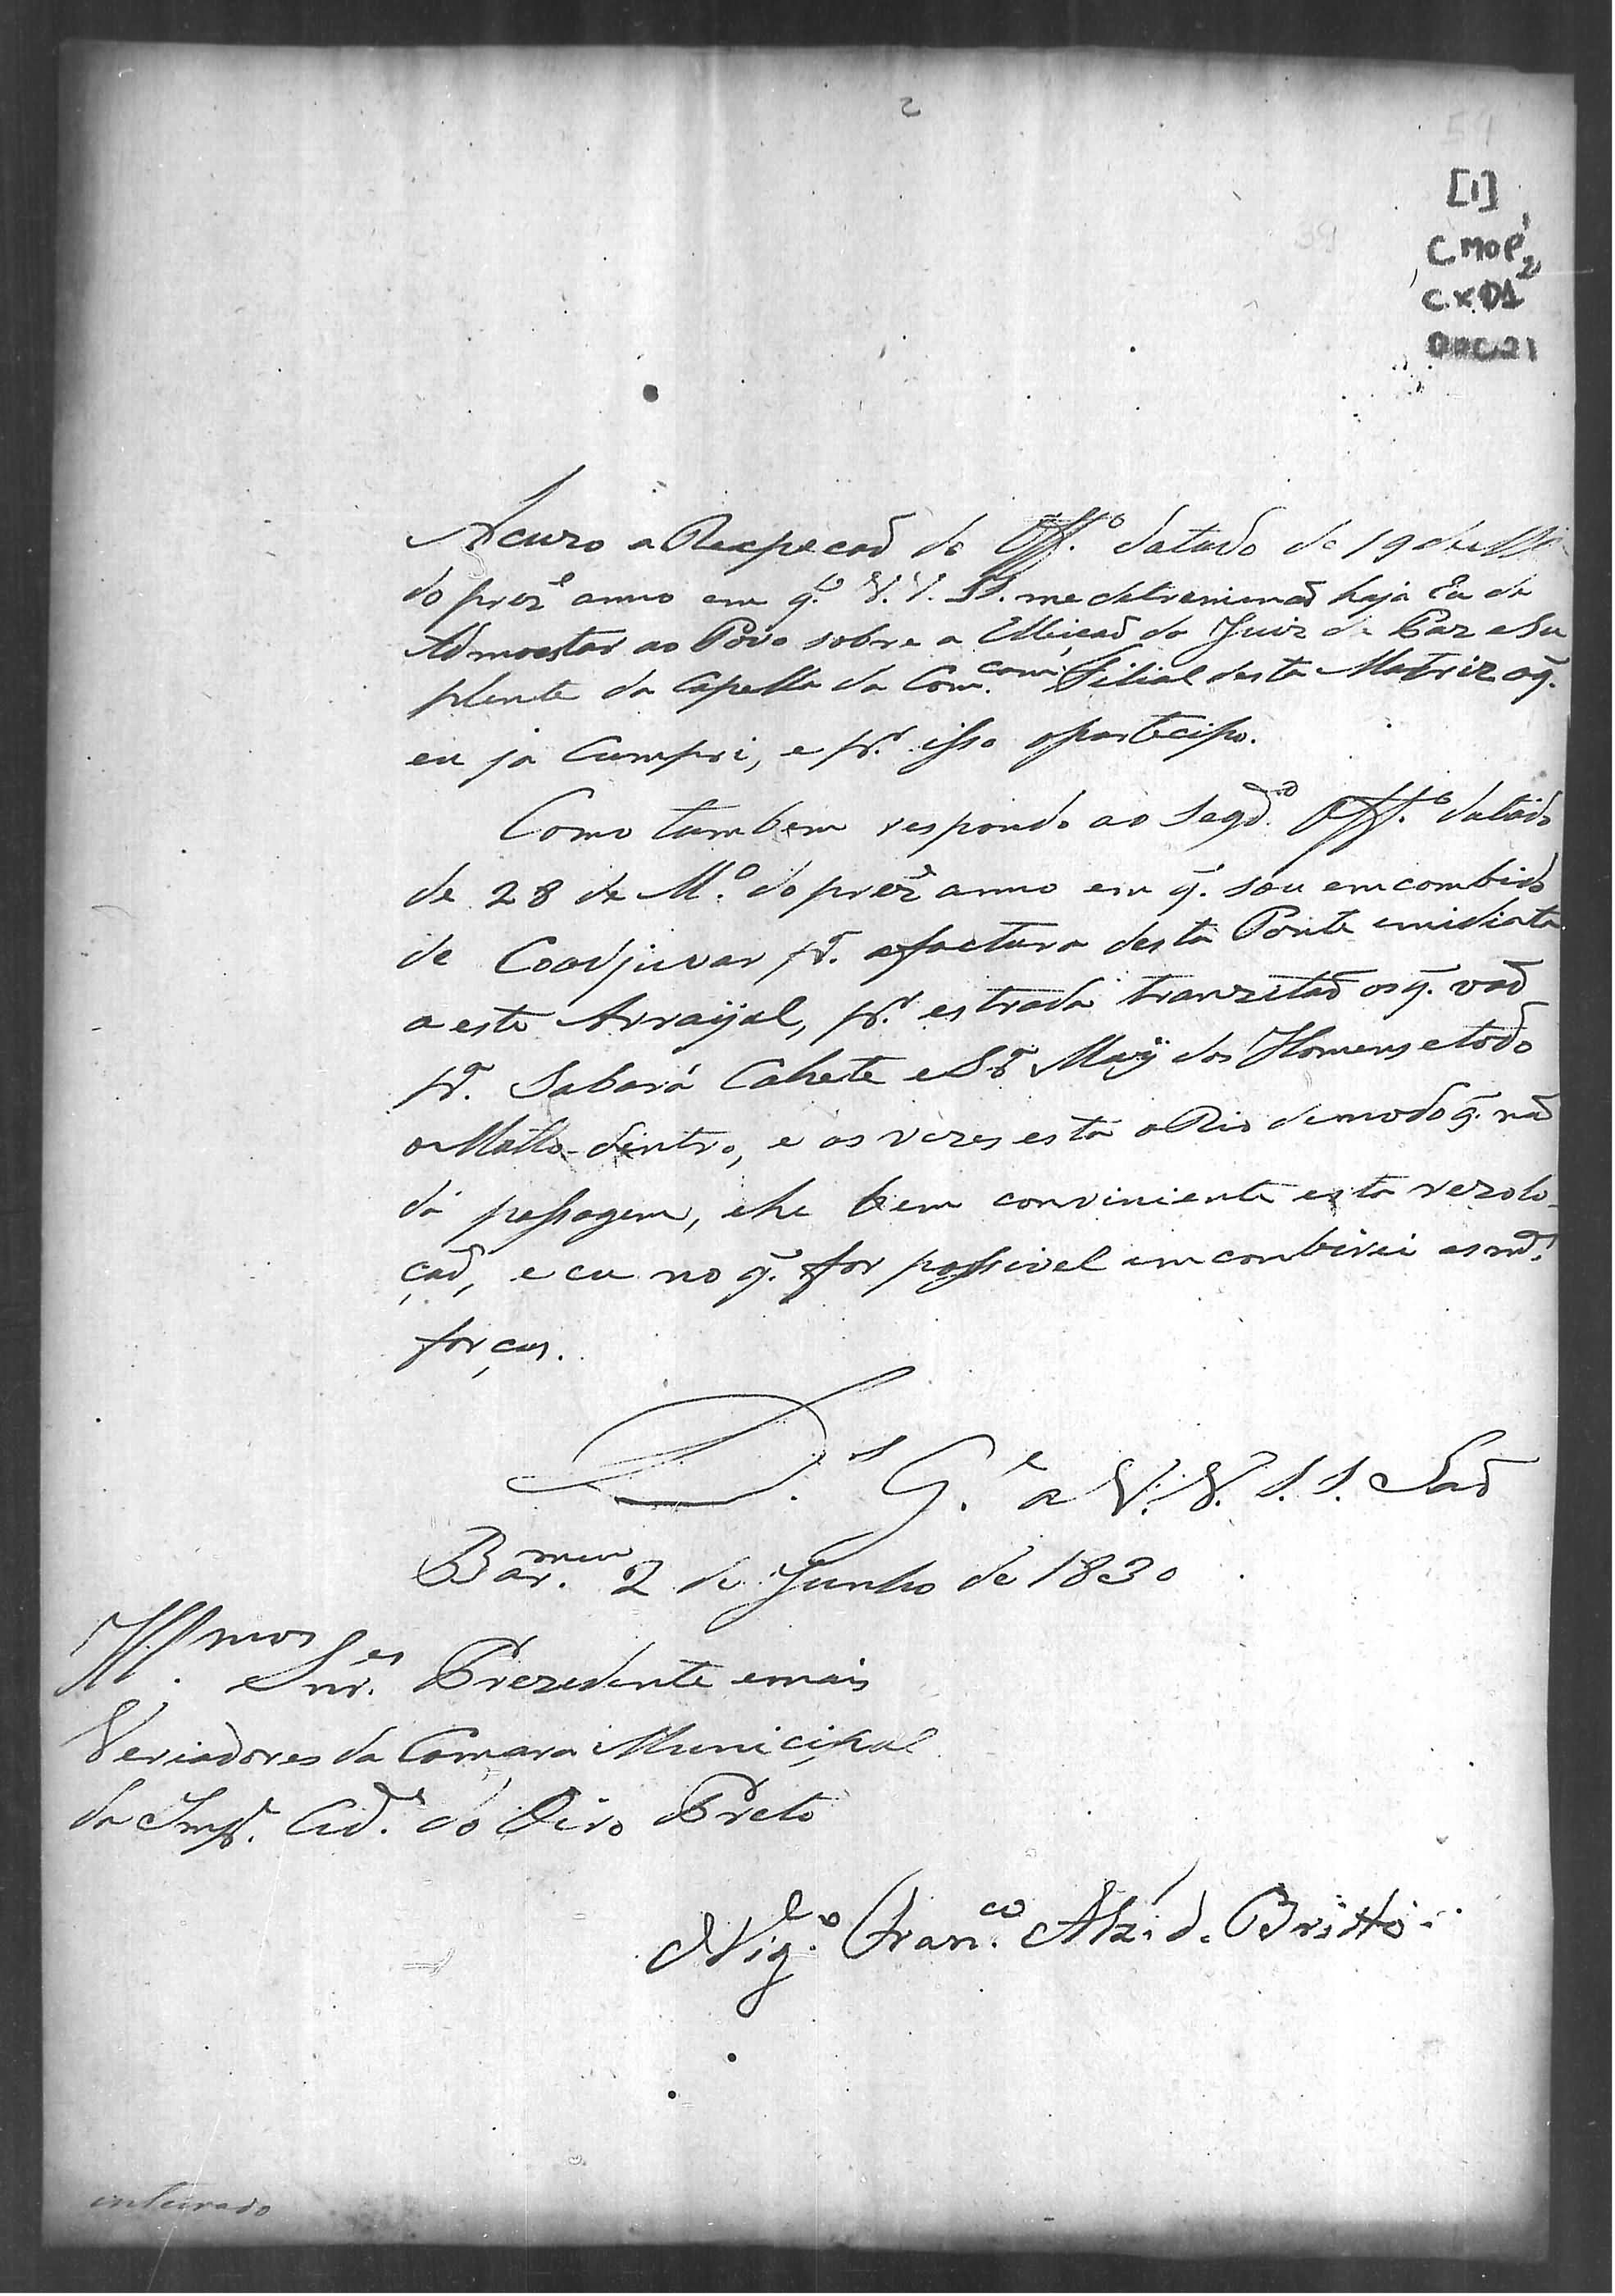 2
59
39
[1]
CMOP
2
CX01
DOC21
Acuzo a Recpeçaõ do Off.º datado de 19 de M
do prez.e anno em q.' V. V. SS. me detreminaõ haja Eu de
Admoestar ao Povo sobre a Elleiçaõ do Juiz de Paz e Su
plente da Capella da Filial desta Matriz oq.'
eu ja Cumpri, e pr. isso o partecipo.
Como tambem respondo ao Segd.º Off.º datado
de 28 de M.º do prez.e anno em q.' sou emcombido
de Coadjuvar p.ª a factura desta Ponte emidiata
a este Arraÿal, pr. estrada tranzitaõ os q.' vaõ
p.ª Sabará Cahete e Sr.ª Maÿ dos Homens e todo
o Matto dentro, e as vezes está o Rio de modo q.' naõ
dá passagem, e he bem conviniente esta rezolo-
çaõ, e eu no q.' for possivel imcombirei as m.as
forças.
D.s G.e a V. V. S. S. Saõ
Bar. 2 de Junho de 1830
Ill.mos Snr.es Prezedente e mais
Veriadores da Camara Municipal
da Imp.l Cid.e do Oiro Preto
Mig.l Fran.co Alz. d. Britto
inteirado